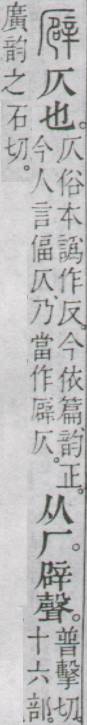 𠪮仄也。
仄俗本譌作反。今依篇韵正。
今人言偪仄乃當作𠪮仄。
从厂。辟聲。
普擊切。
十六部。
廣韵之石切。